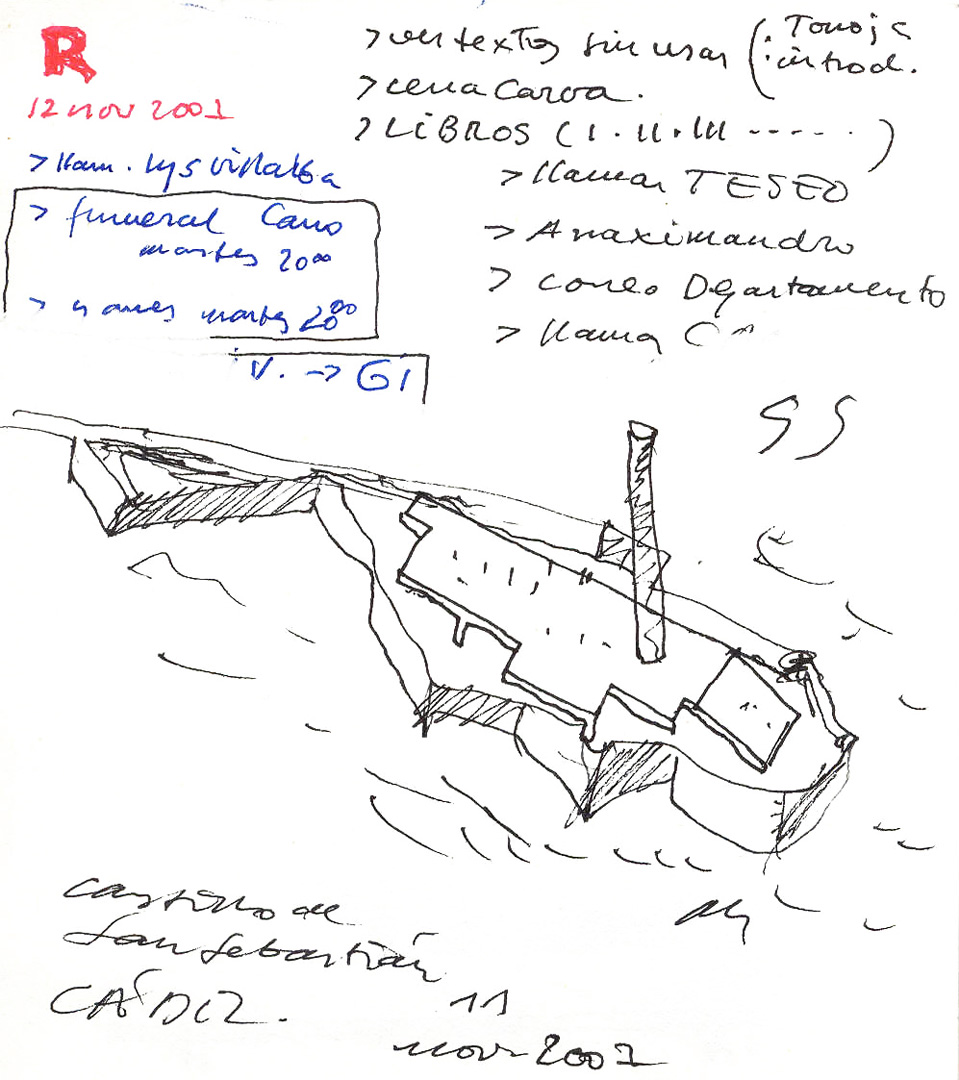 R
12 nov 2001
> llam. Lys Villalba
> funeral Cano
martes 20⁰⁰
martes 20⁰⁰
V. → GI
> ver textos sin usar (. Tomoja
. introd.
> cena Carva.
> LIBROS (I. II. III ----- . )
> llamar TESEO
> Anaximandro
> correo Departamento
> llama
SS
castillo de
San Sebastián
CÁDIZ.
11
nov 2001